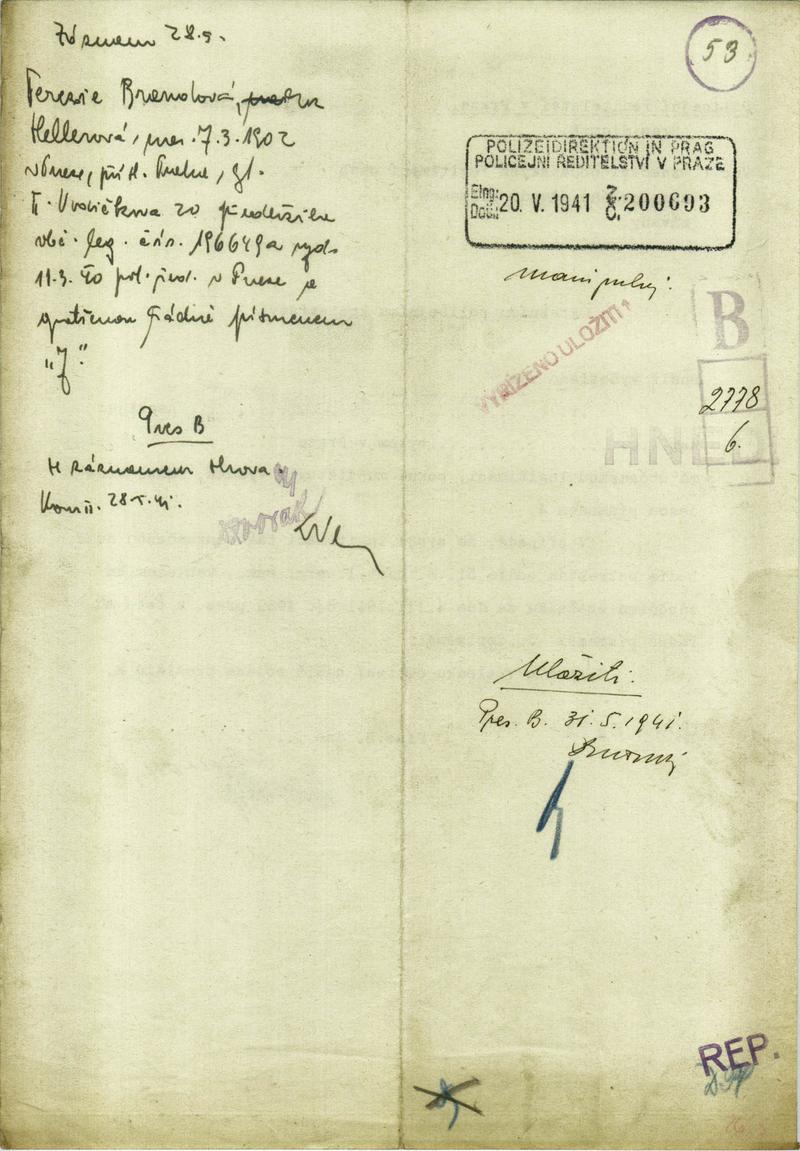 Záznam 28.5.
Terezie Brandová,
Hellerová, nar. 7.3.1902
v Praze, přísl. Praha, yt.
II. Vodičkova 20 předložila
obč. leg. čís. 196649a vyd.
11.3.40 pol. řed. v Praze a
opatřenou řádně písmenem
"J."
Pres B
Se záznamem
28.V.41.
53
POLIZEIDIREKTION IN PRAG
POLICEJNÍ ŘEDITELSTVÍ V PRAZE
Eing:
Došlo: 20. V. 1941 Z. Č. 200693
manipuluj.
VYŘÍZENO ULOŽITI
B
2778
6.
HNED
Dvořák
Uložiti.
Pres. B. 31.5.1941.
REP.